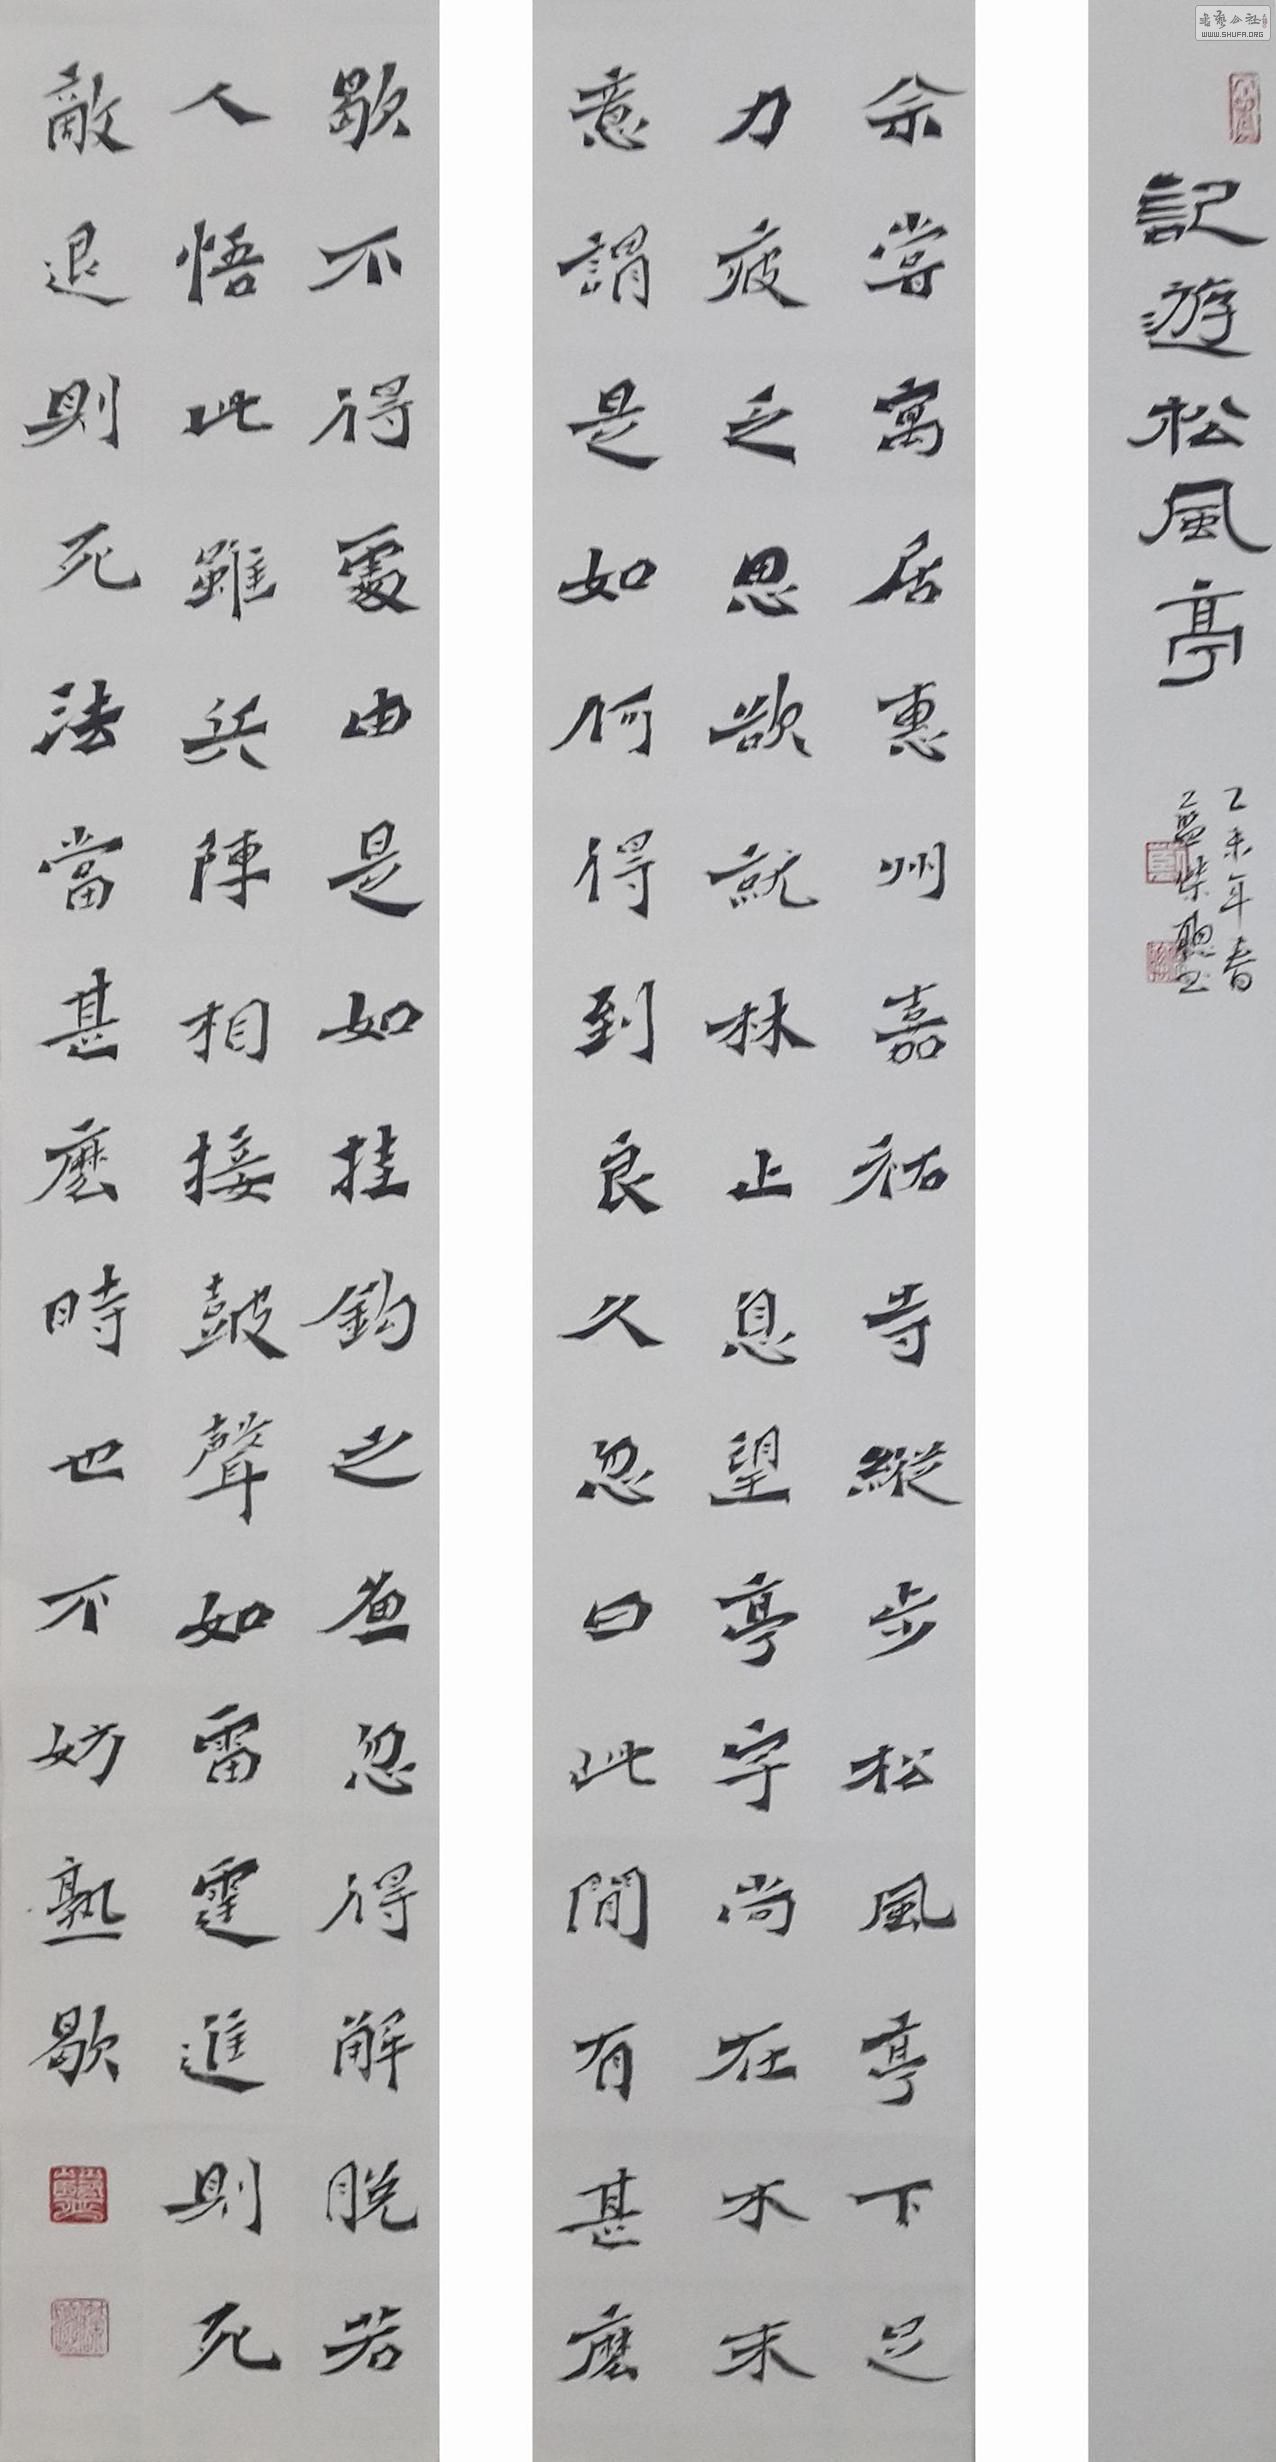 書藝公社
WWW.SHUFA.ORG
記遊松風亭
乙未年春
柴聰書
余嘗寓居惠州嘉祐寺縱步松風亭下足
力疲乏思欲就林止息望亭宇尚在木末
意謂是如何得到良久忽曰此間有甚麽
歇不得處由是如挂鈎之魚忽得解脫若
人悟此雖兵陣相接鼓聲如雷霆進則死
敵退則死法當甚麽時也不妨熟歇